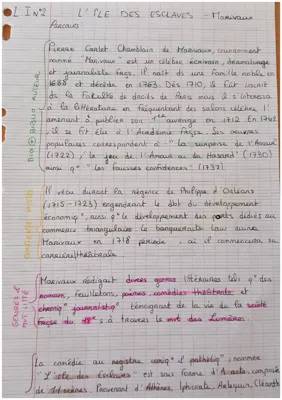 L IN°2 L'ÎLE DES ESCLAVES - Marivaux
Parcours
Pierre Carlet Chamblain de Marivaux, couramment
nommé "Marivaux" est un célèbre écrivain, dramaturge
et journaliste frçs. Il naît ds une famille noble en
1688 et décède en 1763. Dès 1710, il fût inscrit
de la faculté de droits de Paris mais il s'intéressa
à la littérature en fréquentant des salons célèbres,
amenant à publier son 1er ouvrage en 1712. En 1742
, il se fit élire à l'Académie Frçse. Ses oeuvres
populaires correspondent à "la surprise de l'Amour"
(1722), "le jeu de l'Amour et du Hasard" (1730)
ainsi q "les fausses confidences" (1737)
BIO & BIBLIO AUTEUR
Il vécu durant la régence de Philippe d'Orléans
(1715-1723) engendrant le dbt du développement
économiq, ainsi q le développement des ports dédiés au
commerce triangulaire. La banqueroute Law ruina
Marivaux en 1718 période où il commencera sa
carrière théâtrale
Marivaux rédigait divers genres littéraires tels q des
romans, feuilletons, poèmes, comédies théâtrales et
chroniq journalistiq témoignant de la vie de la société
frçse du 18° s à travers le mvt des Lumières
La comédie au registre comiq & pathétiq, nommée
"L'île des Esclaves" est sous forme d'1 acte composée
de 11 scènes. Provenant d'Athènes, Iphicrate, Arlequin, Cléanthis